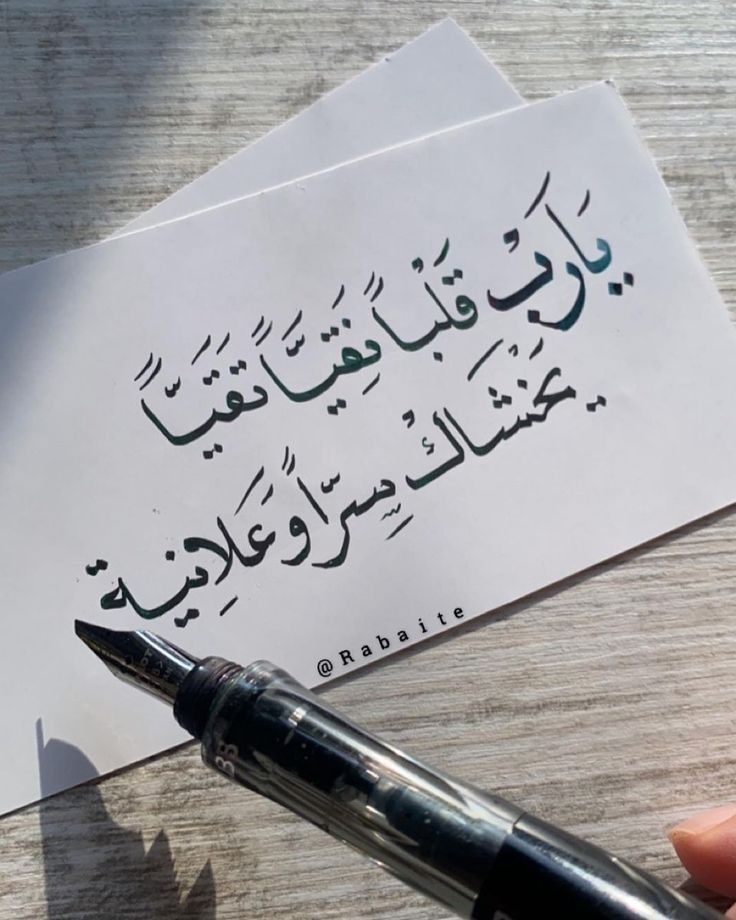 يَارَبْ قَلْباً نَقِيَّاً تَقَيَّاً
يَخْشَاكْ سِرّاً وَعَلَانِية
@Rabaite
BB